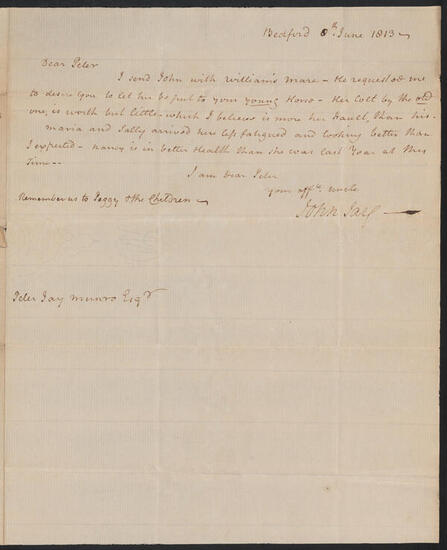 Bedford 8th June 1813 —
Dear Peter
I send John with William's Mare — He requested me
to desire you to let her be put to your young Horse — Her Colt by the old
one, is worth but little — which I believe is more her Fault, than his —
maria and Sally arrived here less fatigued and looking better than
I expected — nancy is in better Health than she was last Year at this
Time —
I am Dear Peter
your affte. uncle
John Jay —
Remember us to Peggy & the Children —
Peter Jay Munro Esqr.